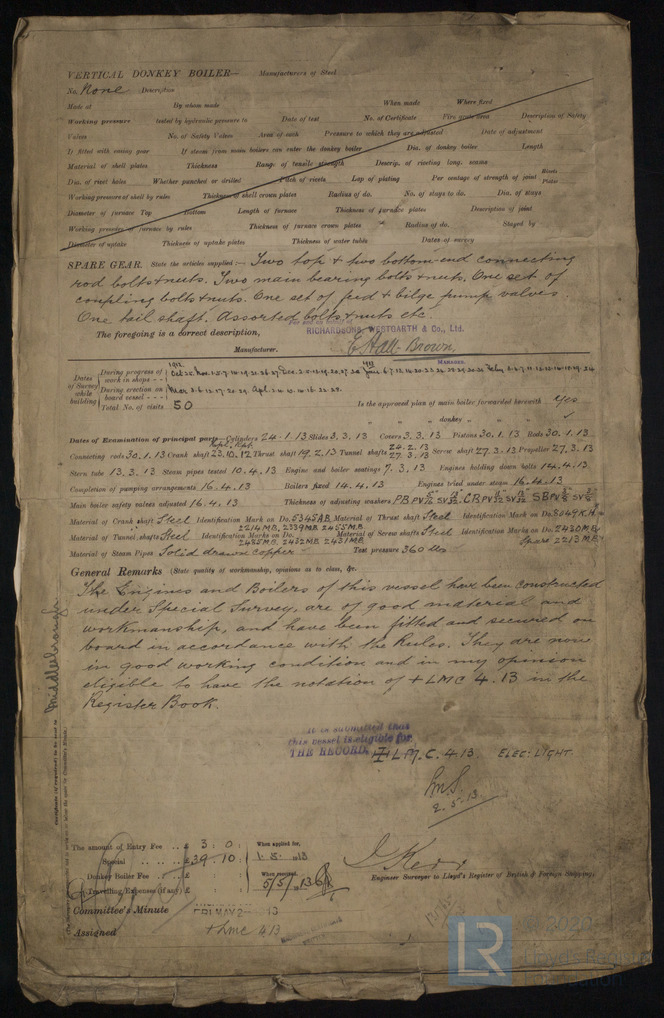 VERTICAL DONKEY BOILER— Manufacturers of Steel
No. None Description
Made at By whom made When made Where fixed
Working pressure tested by hydraulic pressure to Date of test No. of Certificate Fire grate area Description of Safety
Valves No. of Safety Valves Area of each Pressure to which they are adjusted Date of adjustment
If fitted with easing gear If steam from main boilers can enter the donkey boiler Dia. of donkey boiler Length
Material of shell plates Thickness Range of tensile strength Descrip. of riveting long. seams
Dia. of rivet holes Whether punched or drilled Pitch of rivets Lap of plating Per centage of strength of joint Rivets Plates
Working pressure of shell by rules Thickness of shell crown plates Radius of do. No. of stays to do. Dia. of stays
Diameter of furnace Top Bottom Length of furnace Thickness of furnace plates Description of joint
Working pressure of furnace by rules Thickness of furnace crown plates Radius of do. Stayed by
Diameter of uptake Thickness of uptake plates Thickness of water tubes Dates of survey
SPARE GEAR. State the articles supplied:— Two top & two bottom-end connecting
rod bolts & nuts. Two main bearing bolts & nuts. One set of
coupling bolts & nuts. One set of feed & bilge pump valves.
One tail shaft. Assorted bolts & nuts etc.
RICHARDSONS, WESTGARTH & Co., Ltd.
The foregoing is a correct description,
Manufacturer. E Hall-Brown,
MANAGER.
Dates of Survey while building
During progress of work in shops - -
During erection on board vessel - - -
Total No. of visits 50 Is the approved plan of main boiler forwarded herewith Yes
" " " donkey " " "
Dates of Examination of principal parts—Cylinders 24.1.13 Slides 3.3.13 Covers 3.3.13 Pistons 30.1.13 Rods 30.1.13
Connecting rods 30.1.13 Crank shaft 23.10.12 Thrust shaft 19.2.13 Tunnel shafts 24.2.13 27.3.13 Screw shaft 27.3.13 Propeller 27.3.13
Stern tube 13.3.13 Steam pipes tested 10.4.13 Engine and boiler seatings 7.3.13 Engines holding down bolts 14.4.13
Completion of pumping arrangements 16.4.13 Boilers fixed 14.4.13 Engines tried under steam 16.4.13
Main boiler safety valves adjusted 16.4.13 Thickness of adjusting washers
Material of Crank shaft Steel Identification Mark on Do. 5345AB Material of Thrust shaft Steel Identification Mark on Do.
2214MB, 2339MB 2455MB
Material of Tunnel shafts Steel Identification Marks on Do. 2485MB. 2432MB 2431MB Material of Screw shafts Steel Identification Marks on Do. 2430MB
Spare 2213MB
Material of Steam Pipes Solid drawn copper Test pressure 360 lbs
General Remarks (State quality of workmanship, opinions as to class, &c.
The Engines and Boilers of this vessel have been constructed
under Special Survey, are of good material and
workmanship, and have been fitted and secured on
board in accordance with the Rules. They are now
in good working condition and in my opinion
eligible to have the notation of + LMC 4.13 in the
Register Book.
Middlesbrough
It is submitted that
this vessel is eligible for
THE RECORD. + L.M.C. 4.13 ELEC: LIGHT.
2.5.13
The amount of Entry Fee . . £ 3 : 0 : When applied for,
Special . . . . . £ 39 : 10 : 1.5.1913
Donkey Boiler Fee . . . £ : : When received,
Travelling Expenses (if any) £ : : 5/5/1913
J Kerr
Engineer Surveyor to Lloyd's Register of British & Foreign Shipping.
Committee's Minute FRI MAY 2 - 13
Assigned + LMC 4.13
LR
2020
Lloyd's Register
Foundation